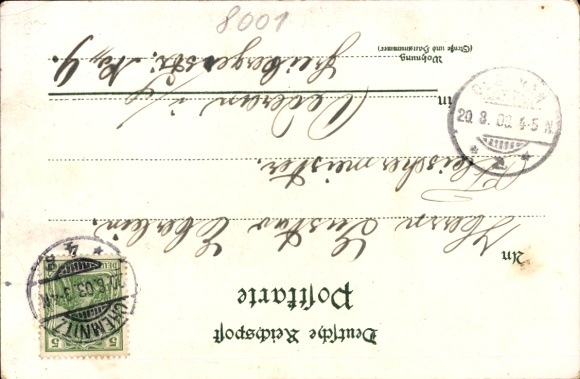 Deutsche Reichspost
Postkarte
An
Herrn Gustav Eberlein
Fleischermeister.
in Oederan i/S
Wohnung
(Straße und Hausnummer)
Freibergerstr. No 9.
8001
20. 8. 03. 4-5 N.
CHEMNITZ
20.8.03. 3-4 N.
4
5
5